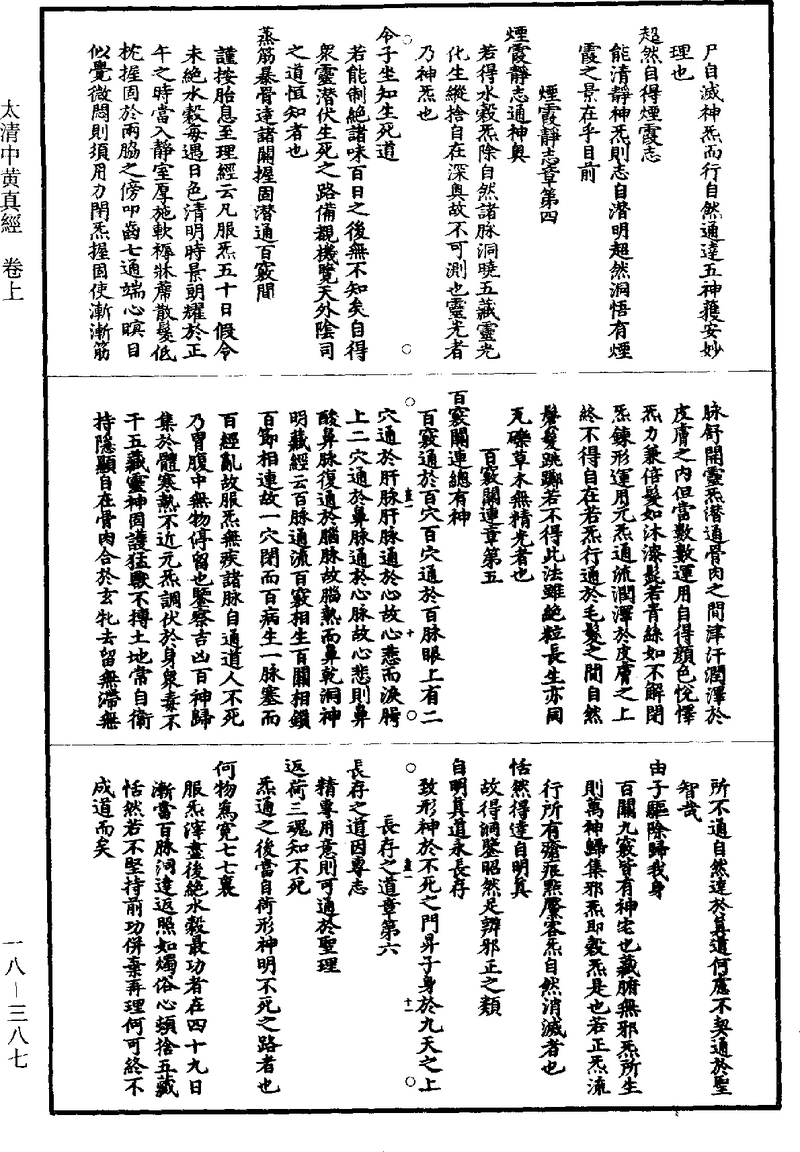 尸自滅神炁而行自然通達五神獲安妙
理也
超然自得煙霞志
能清靜神炁則志自潛明超然洞悟有煙
霞之景在乎目前
煙霞靜志章第四
煙霞靜志通神奥
若得水穀炁除自然諸脉洞曉五藏靈光
化生縱捨自在深奥故不可測也靈光者
乃神炁也
令子坐知生死道
若能制絶諸味百日之後無不知矣自得
衆靈潛伏生死之路備覩機覽天外陰司
之道恒知者也
蒸筋暴骨達諸關握固潛通百竅間
謹按胎息至理經云凡服炁五十日假令
未絶水穀每遇日色清明時景朗耀於正
午之時當入靜室厚施軟褥牀蓆散髮低
枕握固於兩脇之傍叩齒七通端心瞑目
似覺微悶則須用力閉炁握固使漸漸筋
脉舒開靈炁潛通骨肉之間津汗潤澤於
皮膚之内但當數數運用自得顔色悅懌
炁力兼倍髮如沐漆髭若青絲如不解閉
炁鍊形運用元炁通流潤澤於皮膚之上
終不得自在若炁行通於毛髮之間自然
鬢髮跳躑若不得此法雖絶粒長生亦同
瓦礫草木無精光者也
百竅關連章第五
百竅關連總有神
百竅通於百穴百穴通於百脉眼上有二
穴通於肝脉肝脉通於心故心悲而淚腭
上二穴通於鼻脉通於心脉故心悲則鼻
酸鼻脉復通於腦脉故腦熱而鼻乾洞神
明藏經云百脉通流百竅相生百關相鎖
百節相連故一穴閉而百病生一脉塞而
百經亂故服炁無疾諸脉自通道人不死
乃胃腹中無物停留也鑒察吉凶百神歸
集於體寒熱不近元炁調伏於身衆毒不
干五藏靈神固護猛獸不搏土地常自衛
持隱顯自在骨肉合於玄牝去留無滯無
所不通自然達於真道何慮不契通於聖
智哉
由子驅除歸我身
百關九竅皆有神宅也藏腑無邪炁所生
則萬神歸集邪炁即穀炁是也若正炁流
行所有瘡疵點黶客炁自然消滅者也
恬然得達自明真
故得洞鑒昭然足辨邪正之類
自明真道永長存
致形神於不死之門昇子身於九天之上
長存之道章第六
長存之道因專志
精專用意則可通於聖理
返荷三魂知不死
炁通之後當自荷形神明不死之路者也
何物爲寛七七裏
服炁滓盡後絶水穀最功者在四十九日
漸當百脉洞達返照如燭俗心頓捨五藏
恬然若不堅持前功併棄再理何可終不
成道而矣
太清中黄真經　卷上
一八－三八七